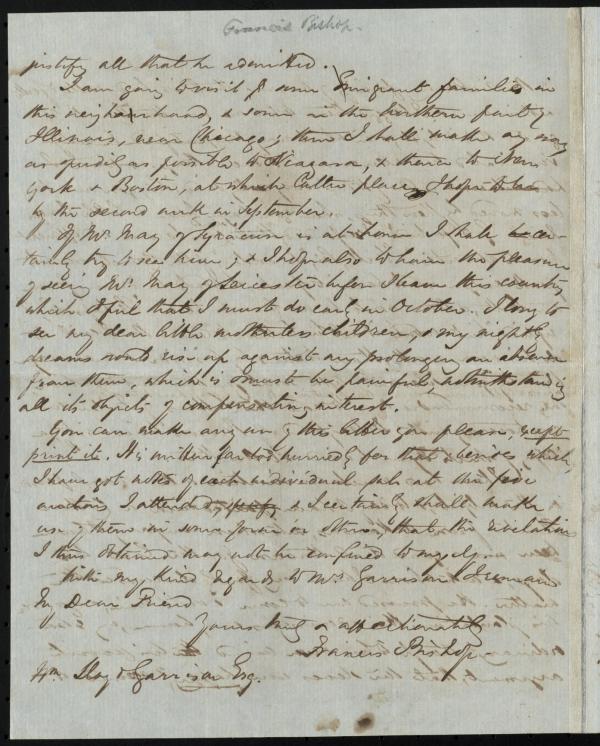 Francis Bishop.
justify all that he admitted.
I am going to visit some Emigrant families in
this neighbourhood, & some in the Northern part of
Illinois, near Chicago; then I shall make my way
as speedily as possible to Niagara, & thence to New
York & Boston, at which latter place, I hope to be
by the second week in September.
If Mr May of Syracuse is at home I shall cer-
tainly try to see him; & I hope also to have the pleasure
of seeing Mr. May of Leicester before I leave this country,
which I feel that I must do early in October. I long to
see my dear little motherless children, & my nightly
dreams rise up against my prolonging an absence
from them, which is & must be painful, notwithstanding
all its objects of compensating interest.
You can make any use of this letter you please, except
print it. It is written far too hurriedly for that, besides which,
I have got notes of each individual sale at the five
auctions I attended, & I certainly shall make
use of them in some form or other, that the revelation
I thus obtained may not be confined to myself.
With my kind regards to Mrs Garrison I remain
My Dear Friend
Yours truly & affectionately
Francis Bishop
Wm Lloyd Garrison Esq.